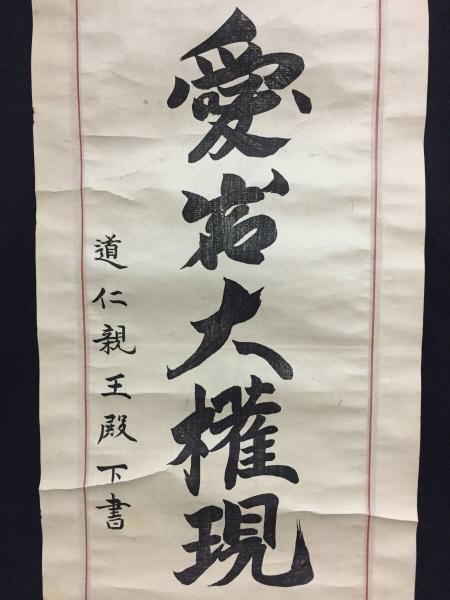 愛宕大權現
道仁親王殿下書